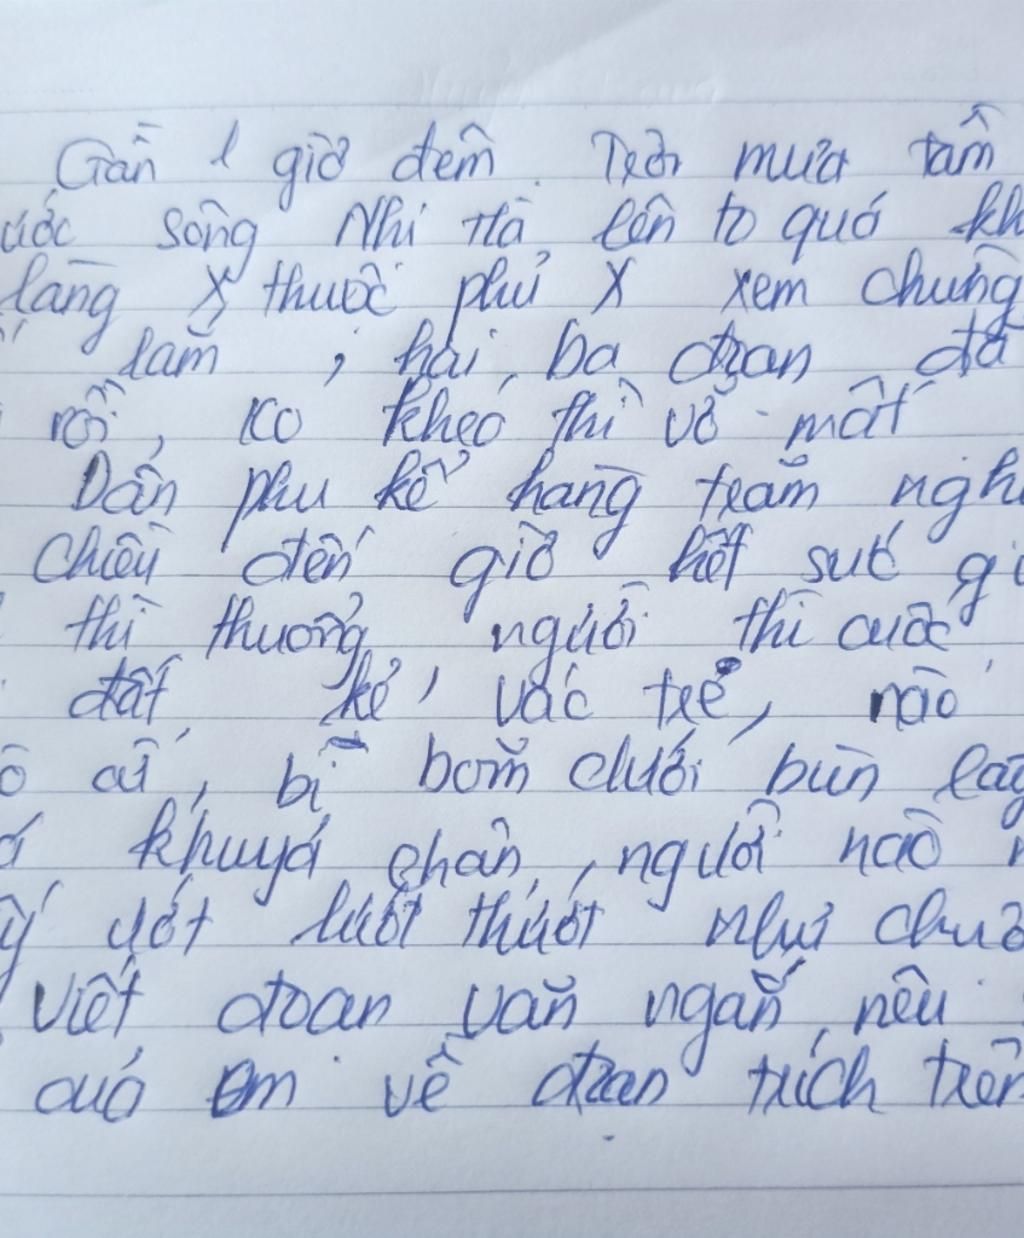 Gần 1 giờ đêm. Trời mưa tầm
ước sông Nhị Hà lên to quá kh
làng X, thuộc phủ X xem chừng
lắm, hai, ba đoạn đã
rồi, ko khéo thì vỡ mất
Dân phu kể hàng trăm ngh
chiều đến giờ hết sức gi
thì thuổng người thì cuốc
đất kẻ vác tre, nào
ô cừ, bì bõm dưới bùn lầy
khuỷa chân, người nào
ấy ướt lướt thướt như chuộ
Viết đoạn văn ngắn nêu
của em về đoạn trích trên